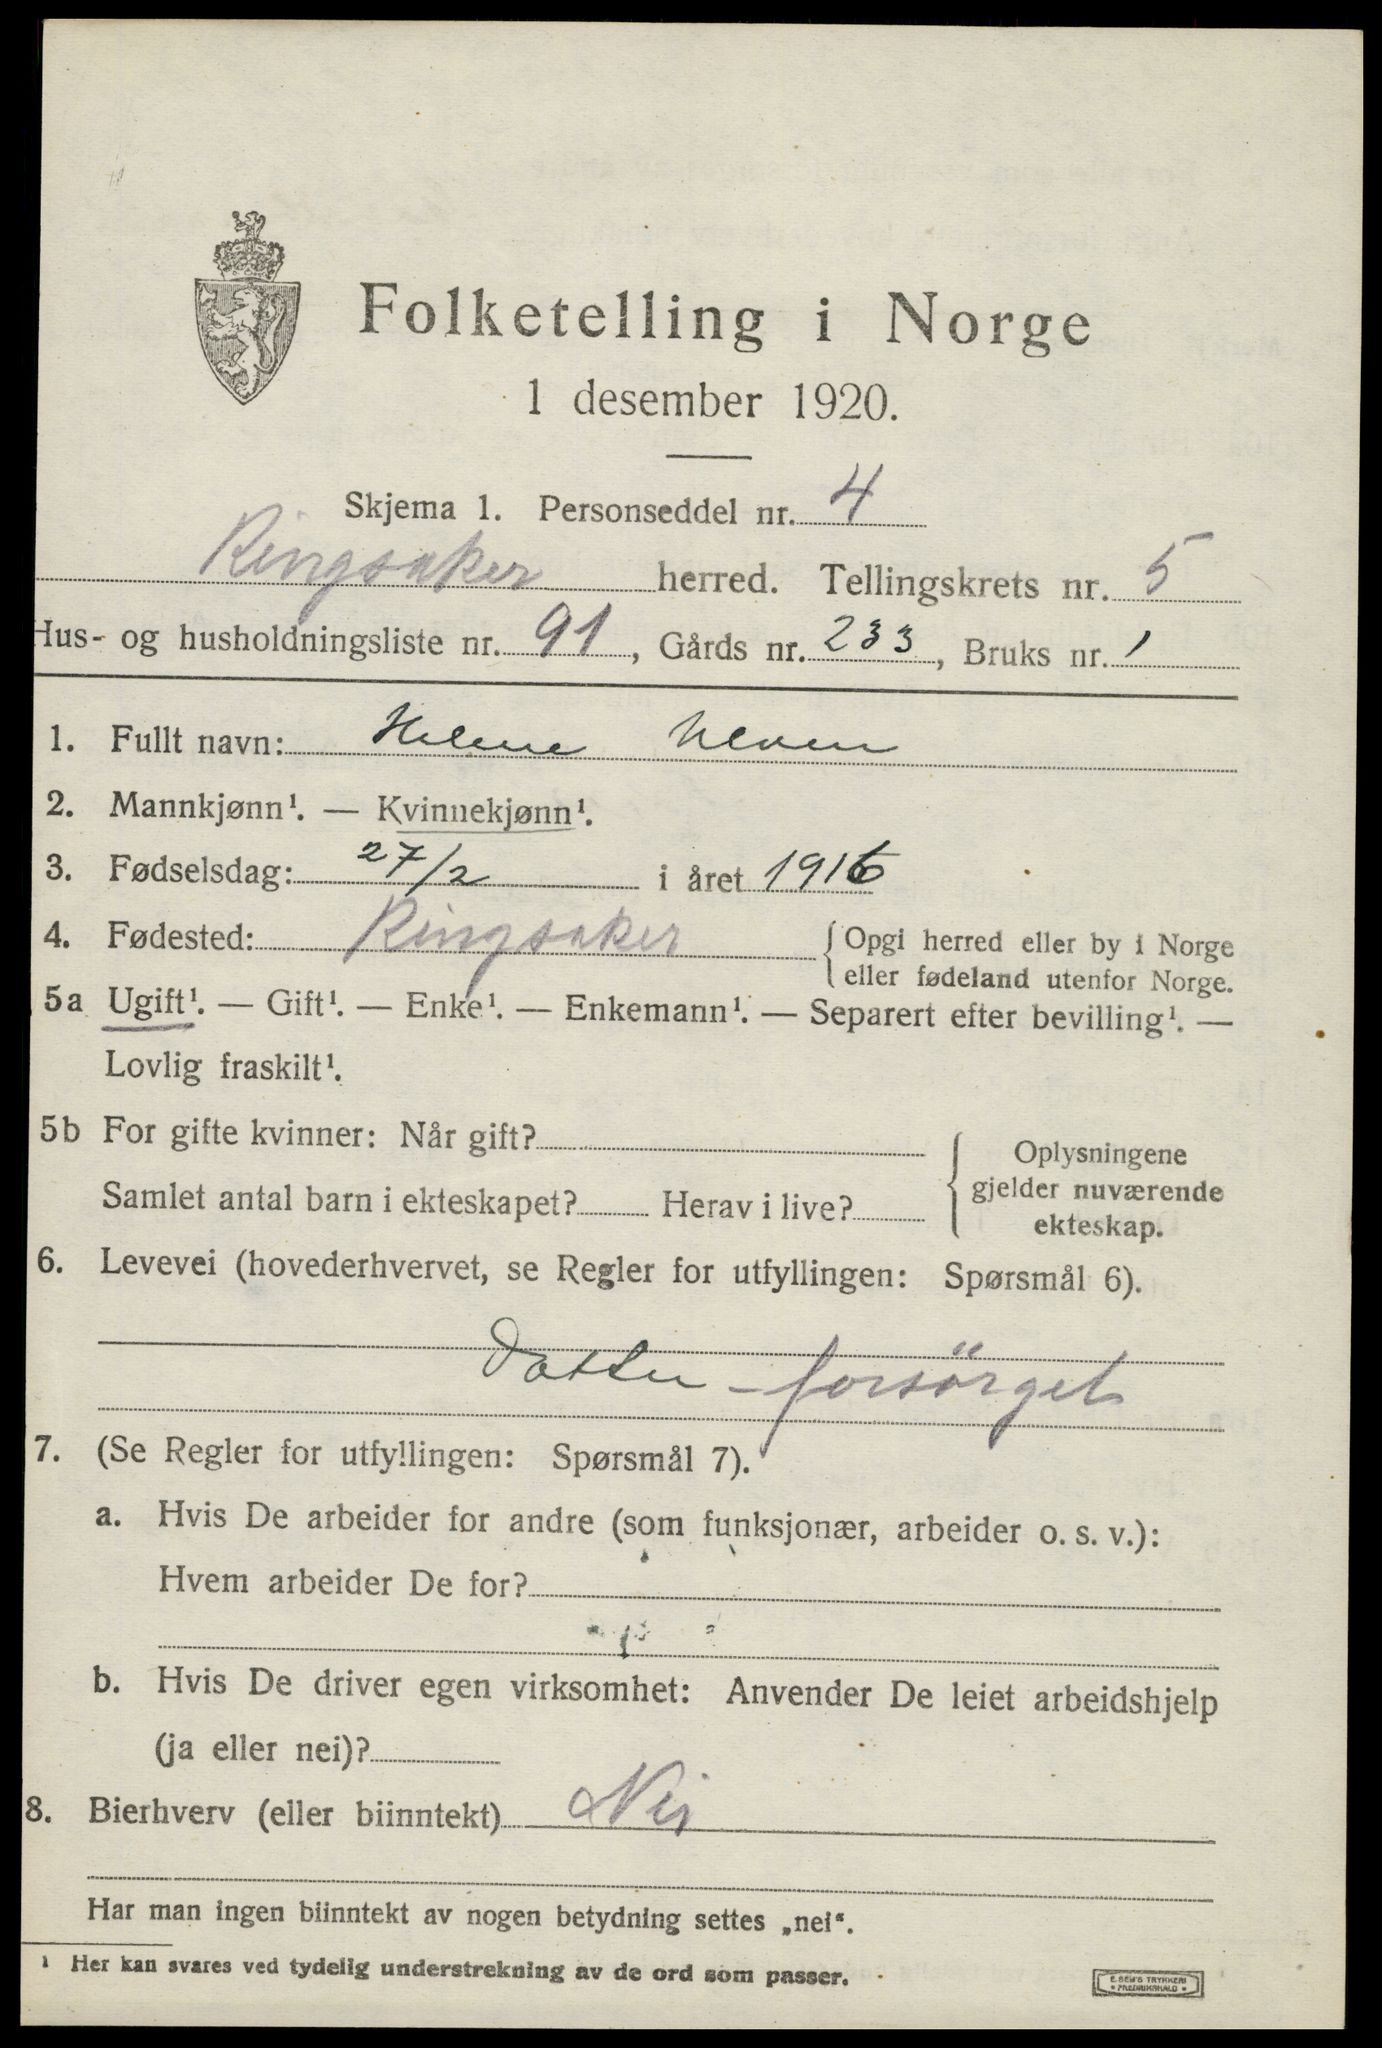 Folketelling i Norge
1 desember 1920.
Skjema 1. Personseddel nr. 4
Ringsaker herred. Tellingskrets nr. 5
Hus- og husholdningsliste nr. 91, Gårds nr. 233, Bruks nr. 1
1. Fullt navn: Helene
2. Mannkjønn¹. — Kvinnekjønn¹.
3. Fødselsdag: 27/2 i året 1916
4. Fødested: Ringsaker {Opgi herred eller by i Norge
eller fødeland utenfor Norge.
5a Ugift¹. — Gift¹. — Enke¹. — Enkemann¹. — Separert efter bevilling¹. —
Lovlig fraskilt¹.
5b For gifte kvinner: Når gift?
Samlet antal barn i ekteskapet? Herav i live?
{ Oplysningene
gjelder nuværende
ekteskap.
6. Levevei (hovederhvervet, se Regler for utfyllingen: Spørsmål 6).
Datter - forsörget
7. (Se Regler for utfyllingen: Spørsmål 7).
a. Hvis De arbeider for andre (som funksjonær, arbeider o. s. v.):
Hvem arbeider De for?
b. Hvis De driver egen virksomhet: Anvender De leiet arbeidshjelp
(ja eller nei)?
8. Bierhverv (eller biinntekt) Nei
Har man ingen biinntekt av nogen betydning settes „nei“.
¹ Her kan svares ved tydelig understrekning av de ord som passer.
E. SEM'S TRYKKERI
* FREDRIKSHALD *